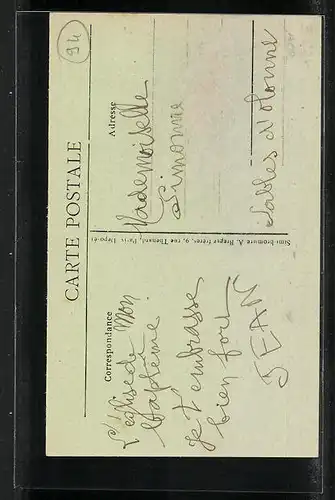 94
CARTE POSTALE
Correspondance
L'église de Mon
Baptême.
Je t'embrasse
bien fort
JEAN
Simi-bromure A. Breger frères, 9, rue Thénard, Paris. Déposé
Adresse
Mademoiselle
Simonne
Sables d'Olonne